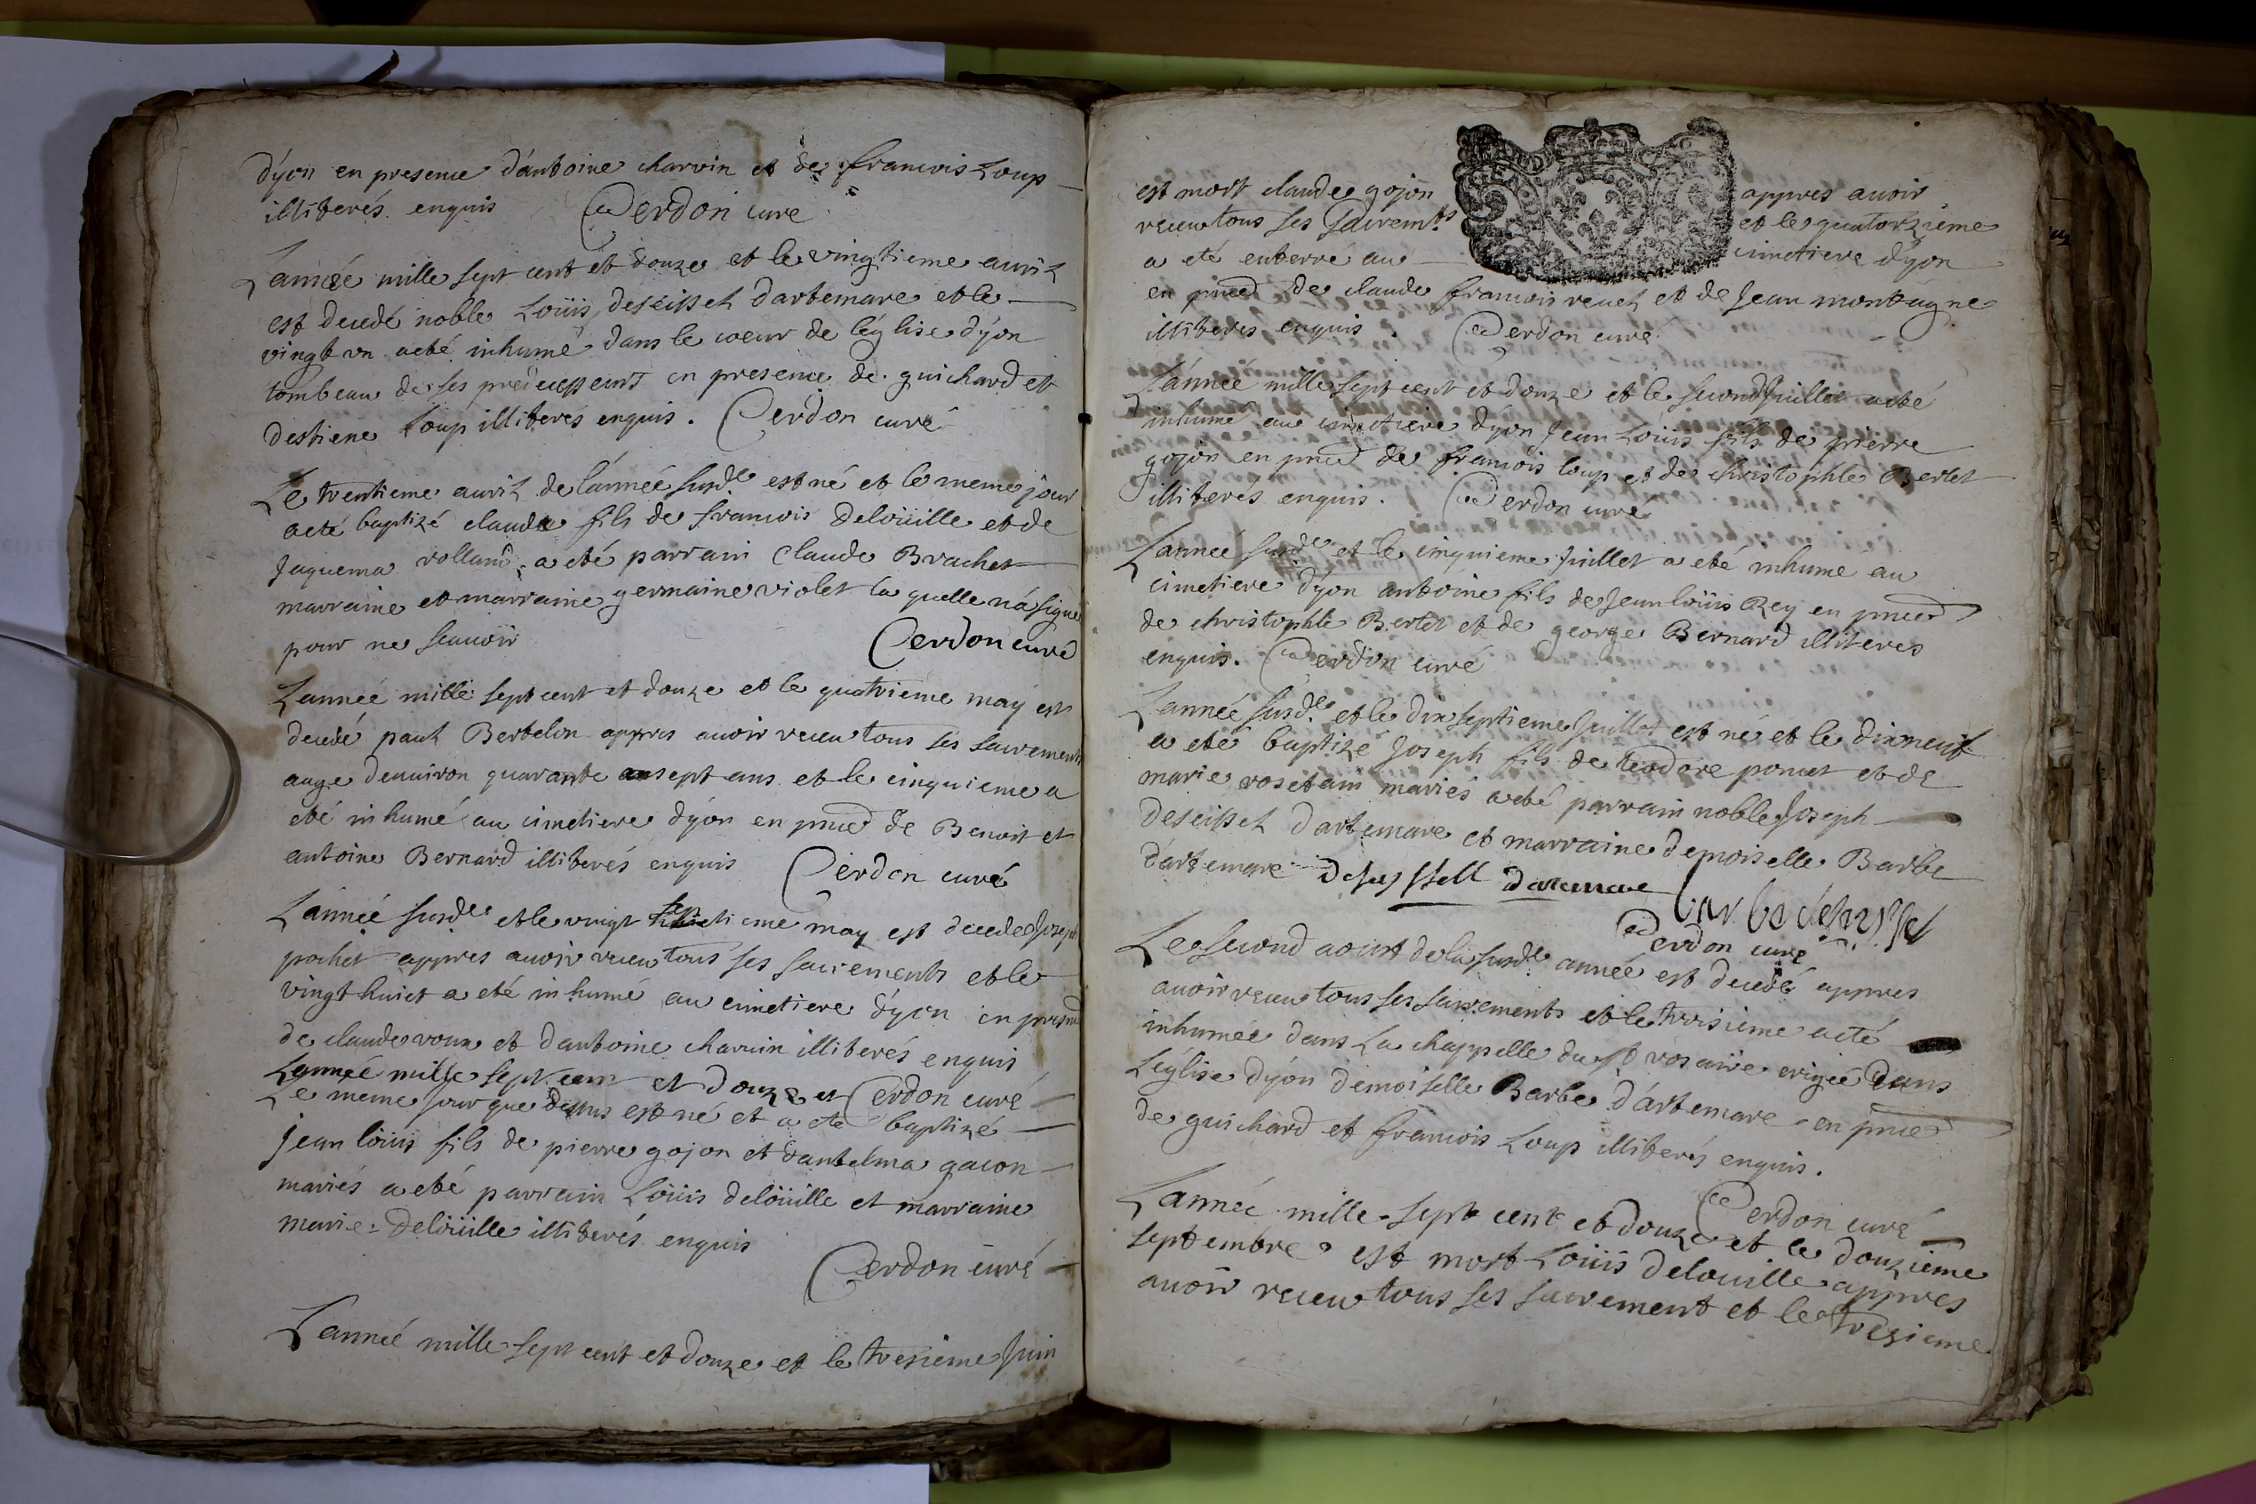 d'yon en presence d'antoine charvin et de francois Loup
illiterés enquis Cerdon curé
L'année mille sept cent et douze et le vingtieme auril
est decedé noble Loüis deseissel d'artemare et le
vingt vn a eté inhumé dans le coeur de l'église d'yon
tombeau de ses predecesseurs en presence de guichard et
d'estiene Loup illiteres enquis. Cerdon curé
Le trentieme auril de l'année susd.e est né et le meme jour
a eté baptizé claude fils de francois deloüille et de
Jaquema rolland, a eté parrain Claude Brachet
marraine et marraine germaine violet la quelle n'a signé
pour ne scauoir Cerdon curé
L'année mille sept cent et douze et le quatrieme may est
decedé paul Bertelin appres auoir receu tous ses sacrements
auge d'enuiron quarante sept ans et le cinquieme a
eté inhumé au cimetiere d'yon en pnce de Benoit et
antoine Bernard illiterés enquis Cerdon curé
L'année susd.e et le vingt septieme may est decedé Joseph
pochet appres auoir receu tous ses sacrements et le
vingt huict a eté inhumé au cimetiere d'yon en presence
de claude roux et d'antoine charuin illiterés enquis
L'année mille sept cent et douze et Cerdon curé
Le meme jour que dessus est né et a eté baptizé
Jean loüis fils de pierre gojon et d'antelma gacon
mariés a eté parrain Loüis deloüille et marraine
marie deloüille illiterés enquis
Cerdon curé
L'année mille sept cent et douze et le tresieme Juin
est mort claude gojon appres auoir
receu tous ses sacrem.ts et le quatorzieme
a eté enterré au cimetiere d'yon
en pnce de claude francois reuel et de Jean montagne
illiteres enquis. Cerdon curé
L'année mille sept cent et douze et le second Juillet a eté
inhumé au cimetiere d'yon Jean Loüis fils de pierre
gojon en pnce de francois loup et de christophle Bertet
illiterés enquis. Cerdon curé
L'année susd.e et le cinquieme Juillet a eté inhumé au
cimetiere d'yon antoine fils de Jean loüis Rey en pnce
de christophle Bertet et de george Bernard illiteres
enquis. Cerdon curé
L'année susd.e et le dix septieme Juillet est né et le dixneuf
a eté baptizé Joseph fils de teodore poncet et de
marie rosetain mariés a eté parrain noble Joseph
Deseissel d'artemare et marraine demoiselle Barbe
d'artemare Deseyssell dartemare
barbe deseyssel
Cerdon curé
Le second aoust de la susd.e année est decedé appres
auoir receu tous ses sacrements et le troisieme a eté
inhumée dans La chappelle du s.t rosaire erigée dans
L'église d'yon demoiselle Barbe d'artemare en pnce
de guichard et francois Loup illiterés enquis.
Cerdon curé
L'année mille sept cent et douze et le douzieme
septembre est mort Loüis delouille appres
auoir receu tous ses sacrement et le tresieme